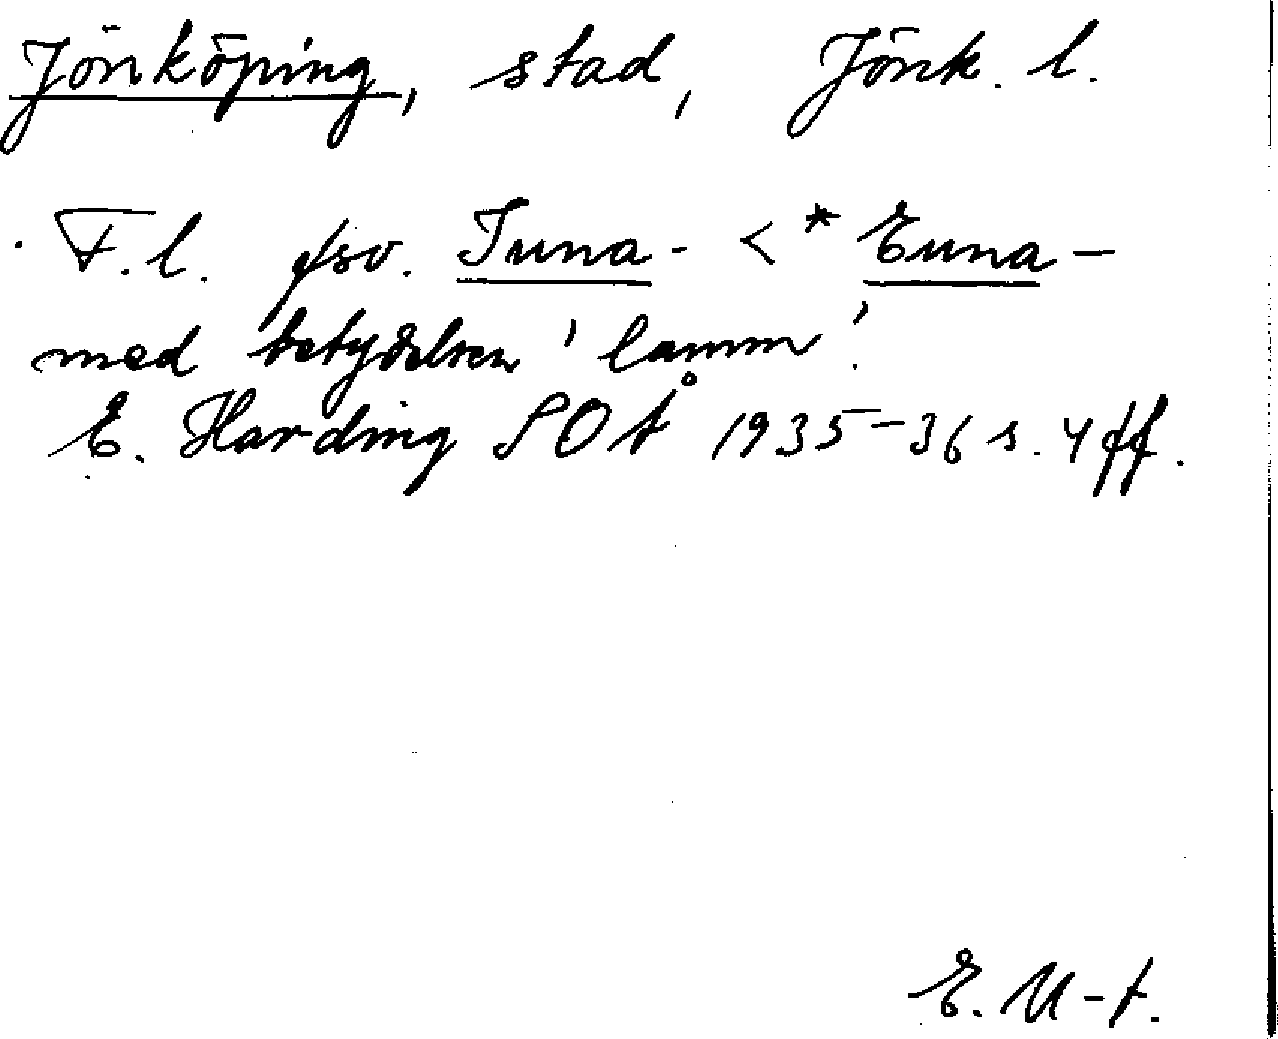 Jönköping, stad, Jönk. l.
F.l. fsv. Juna- < *Euna-
med betydelsen 'lamm'.
E. Harding SOÅ 1935-36 s. 4 ff.
E. U-t.